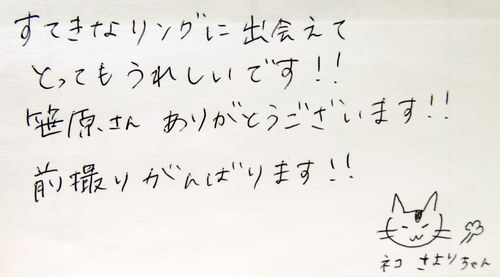 すてきなリングに出会えて
とってもうれしいです!!
笹原さん ありがとうございます!!
前撮りがんばります!!
ネコ さよりちゃん